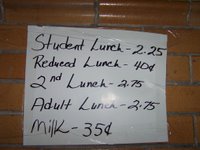 Student Lunch - 2.25
Reduced Lunch - 40¢
2nd Lunch - 2.75
Adult Lunch - 2.75
Milk - 35¢